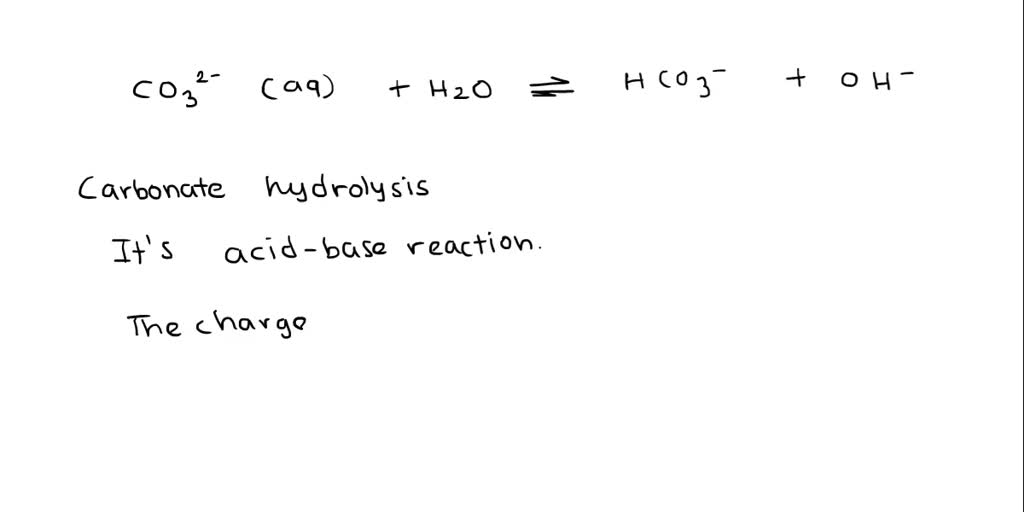 CO₃²⁻ (aq) + H₂O ⇌ HCO₃⁻ + OH⁻
Carbonate hydrolysis
It's acid-base reaction.
The charge